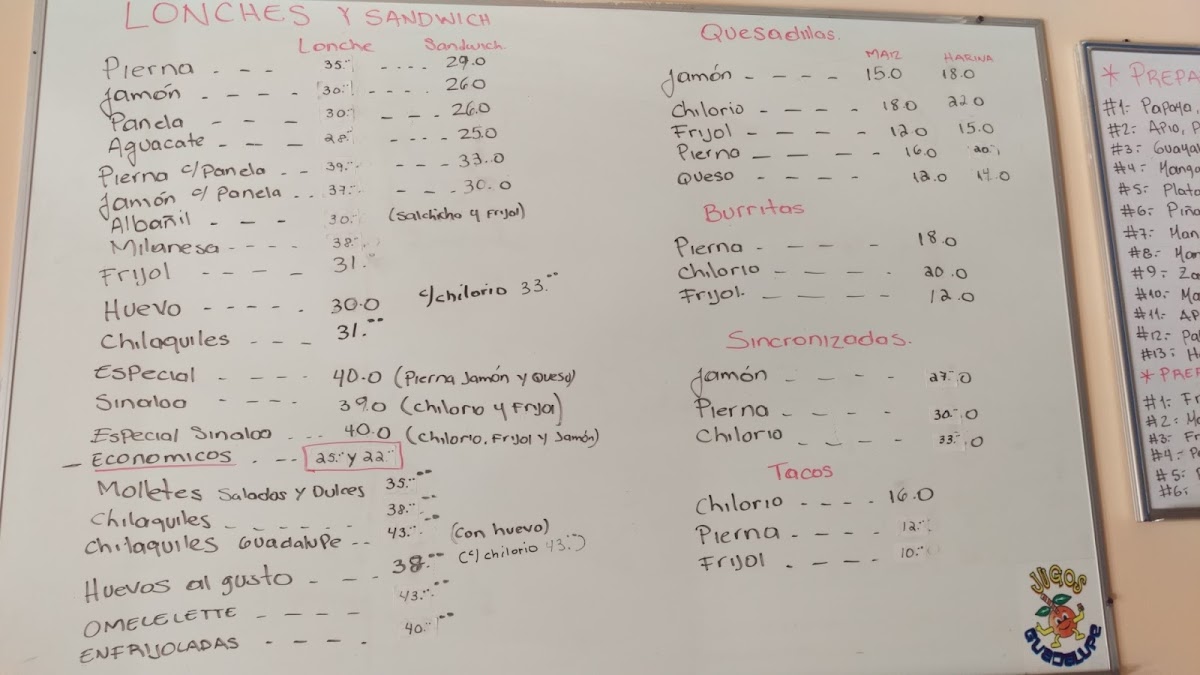 LONCHES Y SANDWICH
Lonche Sandwich.
Pierna . - - - 35.- - - - . 29.0
Jamón - - - - 30.- - - - - 26.0
Panela - - - 30.- - - - 26.0
Aguacate - - - 28.- - - - - 25.0
Pierna c/Panela . - - 39.- - - - 33.0
Jamón c/Panela . . 37.- - - - 30.0
Albañil - - - 30.- (Salchicha y Frijol)
Milanesa - - - - 38.-
Frijol - - - - 31.-
Huevo - - - - - . 30.0 c/chilorio 33.--
Chilaquiles - - - 31.--
Especial - - - - 40.0 (Pierna Jamón y Queso)
Sinaloa - - - - 39.0 (Chilorio y Frijol)
Especial Sinaloa . . . 40.0 (Chilorio, Frijol y Jamón)
- ECONOMICOS . - - 25.- y 22.-
Molletes Salados y Dulces 35.--
Chilaquiles - - - - - - 38.--
Chilaquiles Guadalupe - - 43.-- (con huevo)
Huevos al gusto - - - 38.-- (c/chilorio 43.-)
OMELELETTE - - - - 43.--
ENFRIJOLADAS - - - - 40.--
Quesadillas.
MAIZ HARINA
Jamón - - - - 15.0 18.0
Chilorio - - - - 18.0 22.0
Frijol - - - - 12.0 15.0
Pierna - - - - 16.0 20.-
Queso - - - - 12.0 14.0
Burritas
Pierna - - - - 18.0
Chilorio - - - - 20.0
Frijol. - - - - 12.0
Sincronizadas.
Jamón - - - - 27.0
Pierna - - - - 30.-.0
Chilorio - - - - 33.-.0
Tacos
Chilorio - - - - 16.0
Pierna - - - - 12.--
Frijol - - - - 10.--
JUGOS
GUADALUPE
* PREPA
#1:- Papaya,
#2: Apio, P
#3: Guaya
#4:- Mango
#5:- Plata
#6:- Piña
#7:- Man
#8:- Man
#9:- Za
#10:- Ma
#11:- AP
#12:- Pa
#13: H
* PREP
#1: Fr
#2: Ma
#3: Fr
#4.- Pa
#5:
#6: